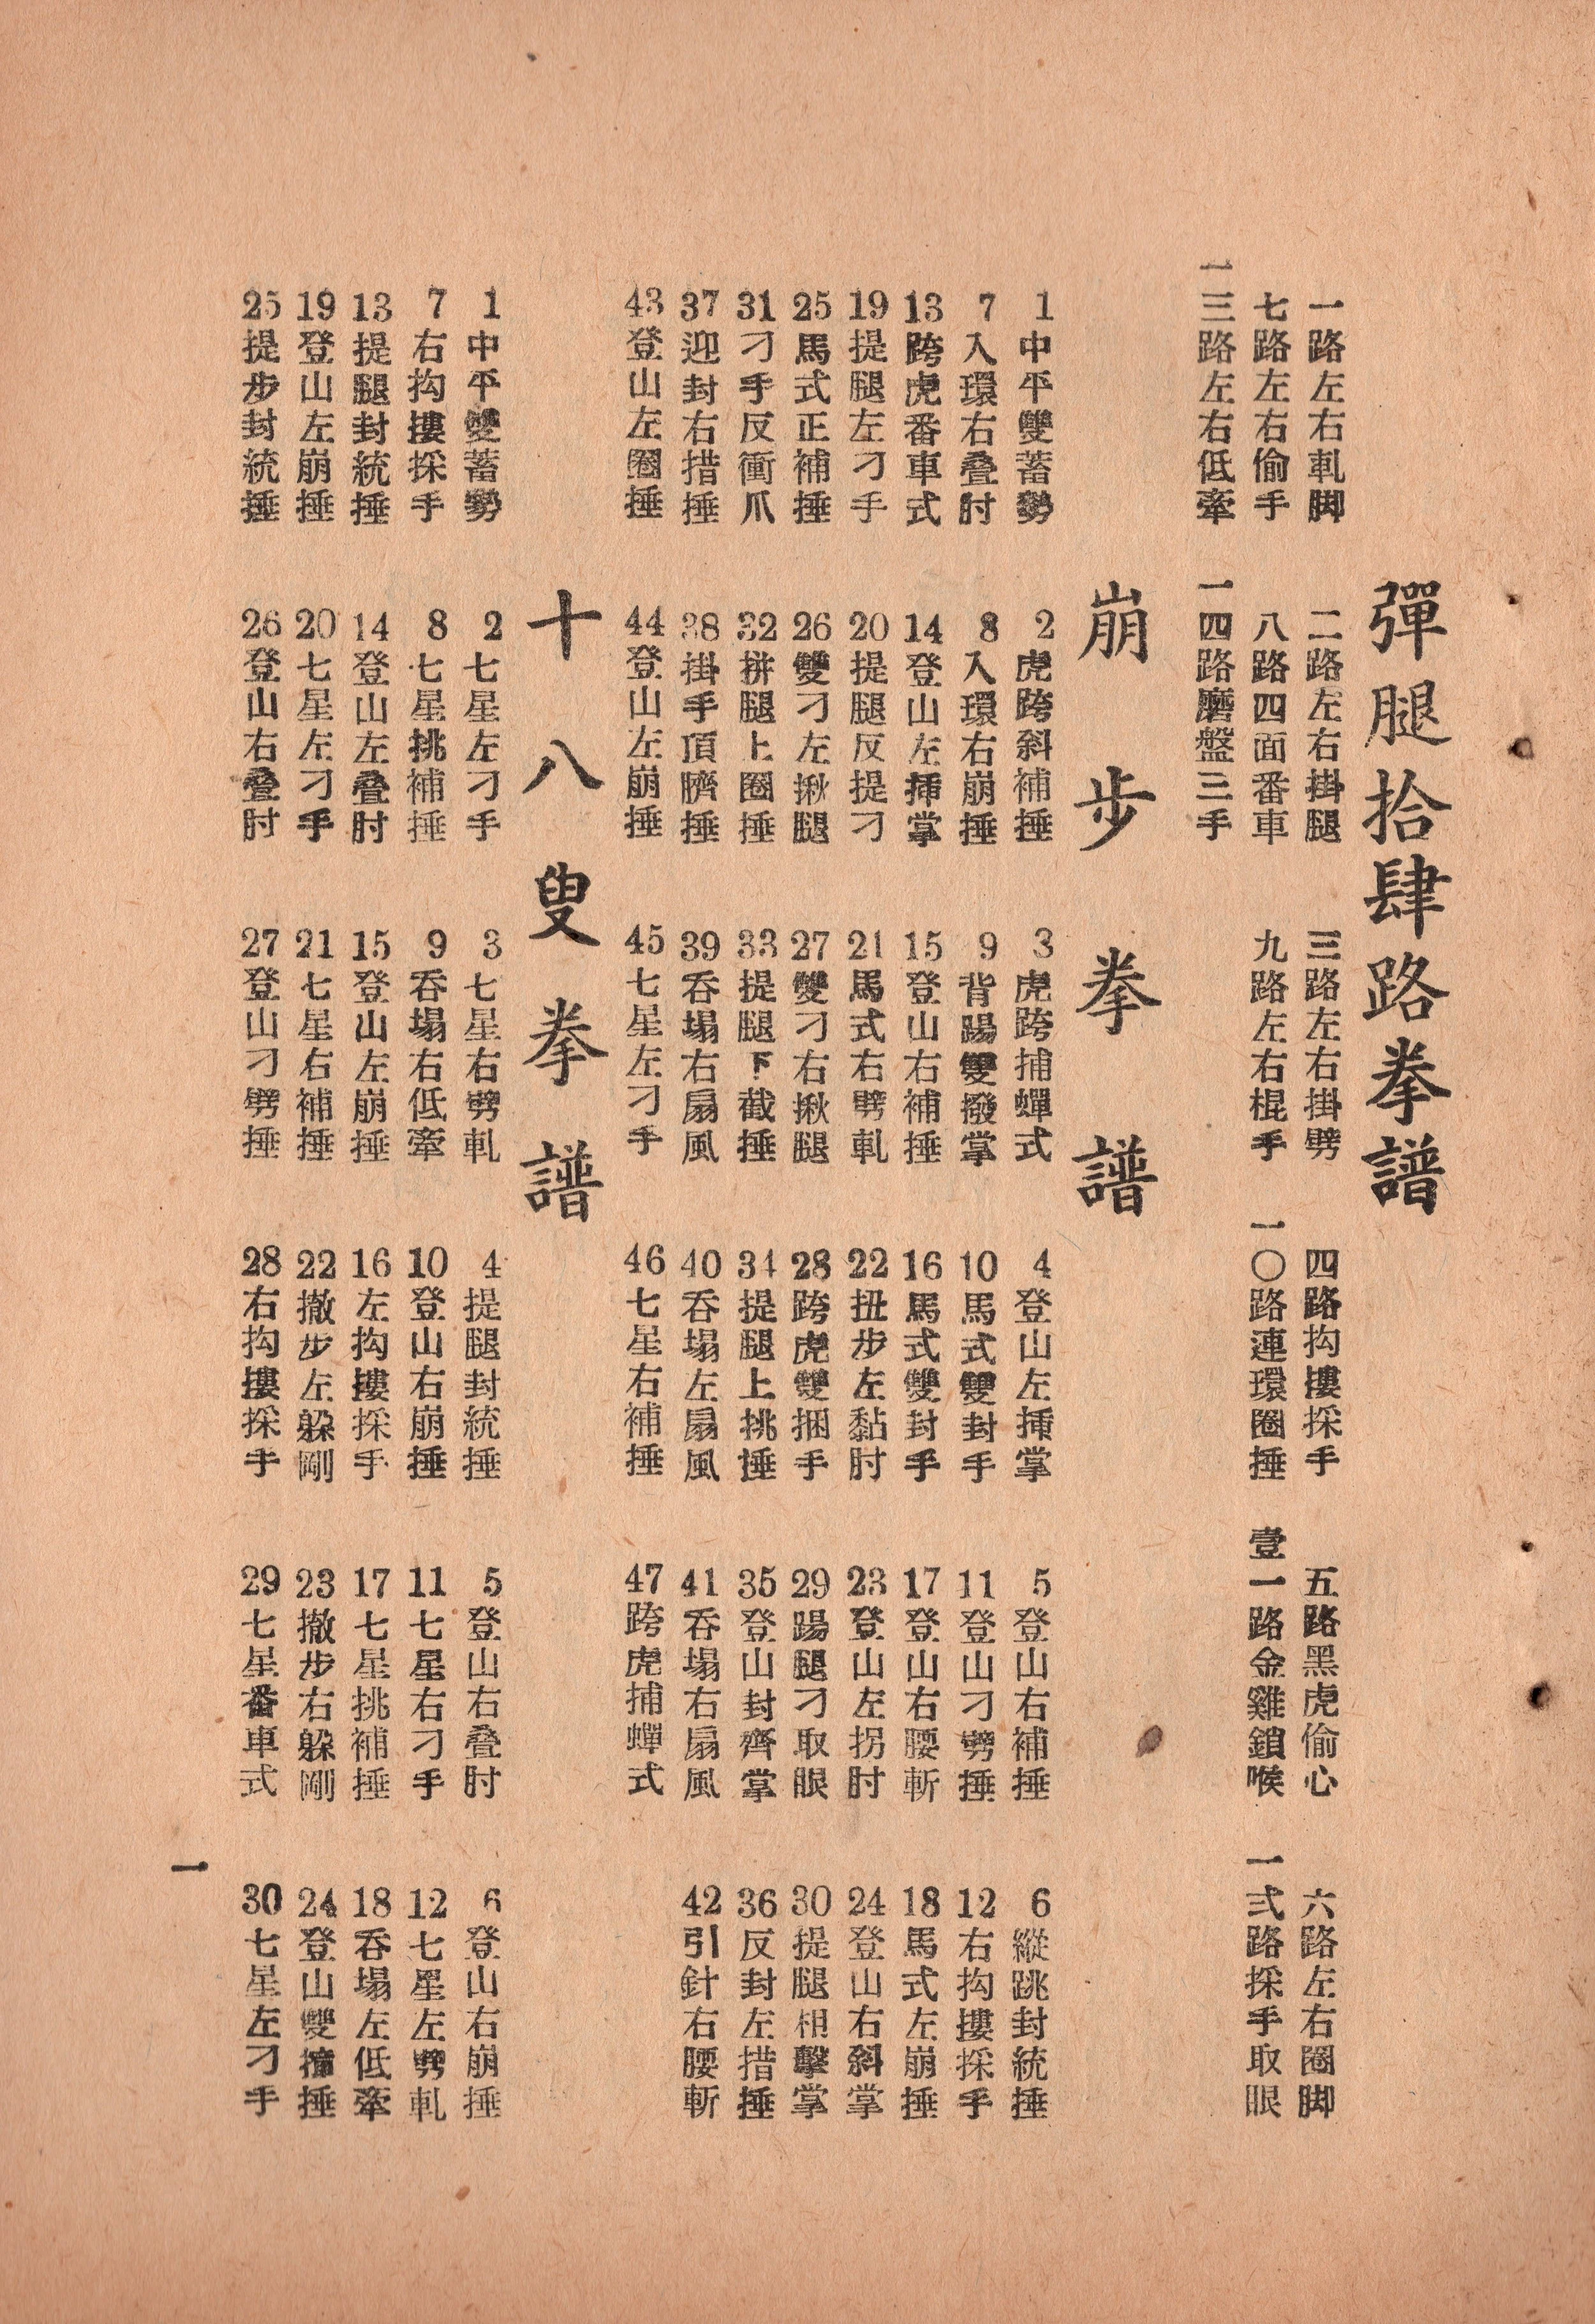 彈腿拾肆路拳譜
一路左右軋脚 二路左右掛腿 三路左右掛劈 四路抅摟採手 五路黑虎偷心 六路左右圈脚
七路左右偷手 八路四面番車 九路左右棍手 一〇路連環圈捶 壹一路金雞鎖喉 一弍路採手取眼
一三路左右低牽 一四路磨盤三手
崩步拳譜
1中平雙蓄勢 2虎跨斜補捶 3虎跨捕蟬式 4登山左揷掌 5登山右補捶 6縱跳封統捶
7入環右叠肘 8入環右崩捶 9背踢雙撥掌 10馬式雙封手 11登山刁劈捶 12右抅摟採手
13跨虎番車式 14登山左揷掌 15登山右補捶 16馬式雙封手 17登山右腰斬 18馬式左崩捶
19提腿左刁手 20提腿反提刁 21馬式右劈軋 22扭步左黏肘 23登山左拐肘 24登山右斜掌
25馬式正補捶 26雙刁左揪腿 27雙刁右揪腿 28跨虎雙捆手 29踢腿刁取眼 30提腿相擊掌
31刁手反衝爪 32拼腿上圈捶 33提腿下截捶 34提腿上挑捶 35登山封齊掌 36反封左措捶
37迎封右措捶 38掛手頂臍捶 39吞塌右扇風 40吞塌左扇風 41吞塌右扇風 42引針右腰斬
43登山左圈捶 44登山左崩捶 45七星左刁手 46七星右補捶 47跨虎捕蟬式
十八叟拳譜
1中平雙蓄勢 2七星左刁手 3七星右劈軋 4提腿封統捶 5登山右叠肘 6登山右崩捶
7右抅摟採手 8七星挑補捶 9吞塌右低牽 10登山右崩捶 11七星右刁手 12七星左劈軋
13提腿封統捶 14登山左叠肘 15登山左崩捶 16左抅摟採手 17七星挑補捶 18吞塌左低牽
19登山左崩捶 20七星左刁手 21七星右補捶 22撤步左躲剛 23撤步右躲剛 24登山雙撞捶
25提步封統捶 26登山右叠肘 27登山刁劈捶 28右抅摟採手 29七星番車式 30七星左刁手
一